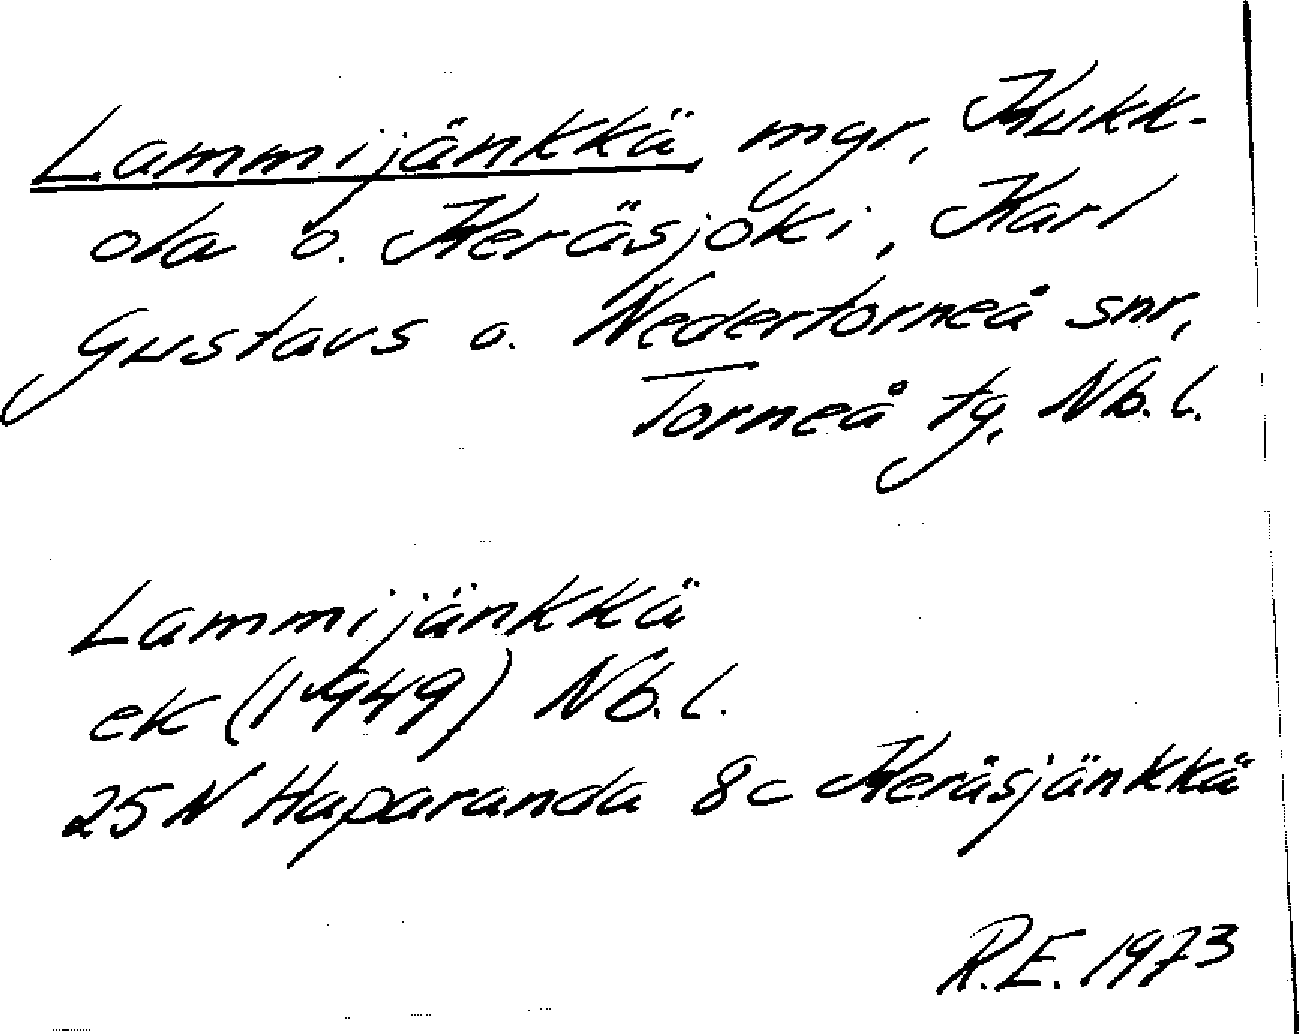 Lammijänkkä, mgr, Kukk-
ola o. Keräsjoki, Karl
Gustavs o. Nedertorneå snr,
Torneå tg, Nb. l.
Lammijänkkä
ek (1949) Nb. l.
25 N Haparanda 8c Keräsjänkkä
R.E. 1973